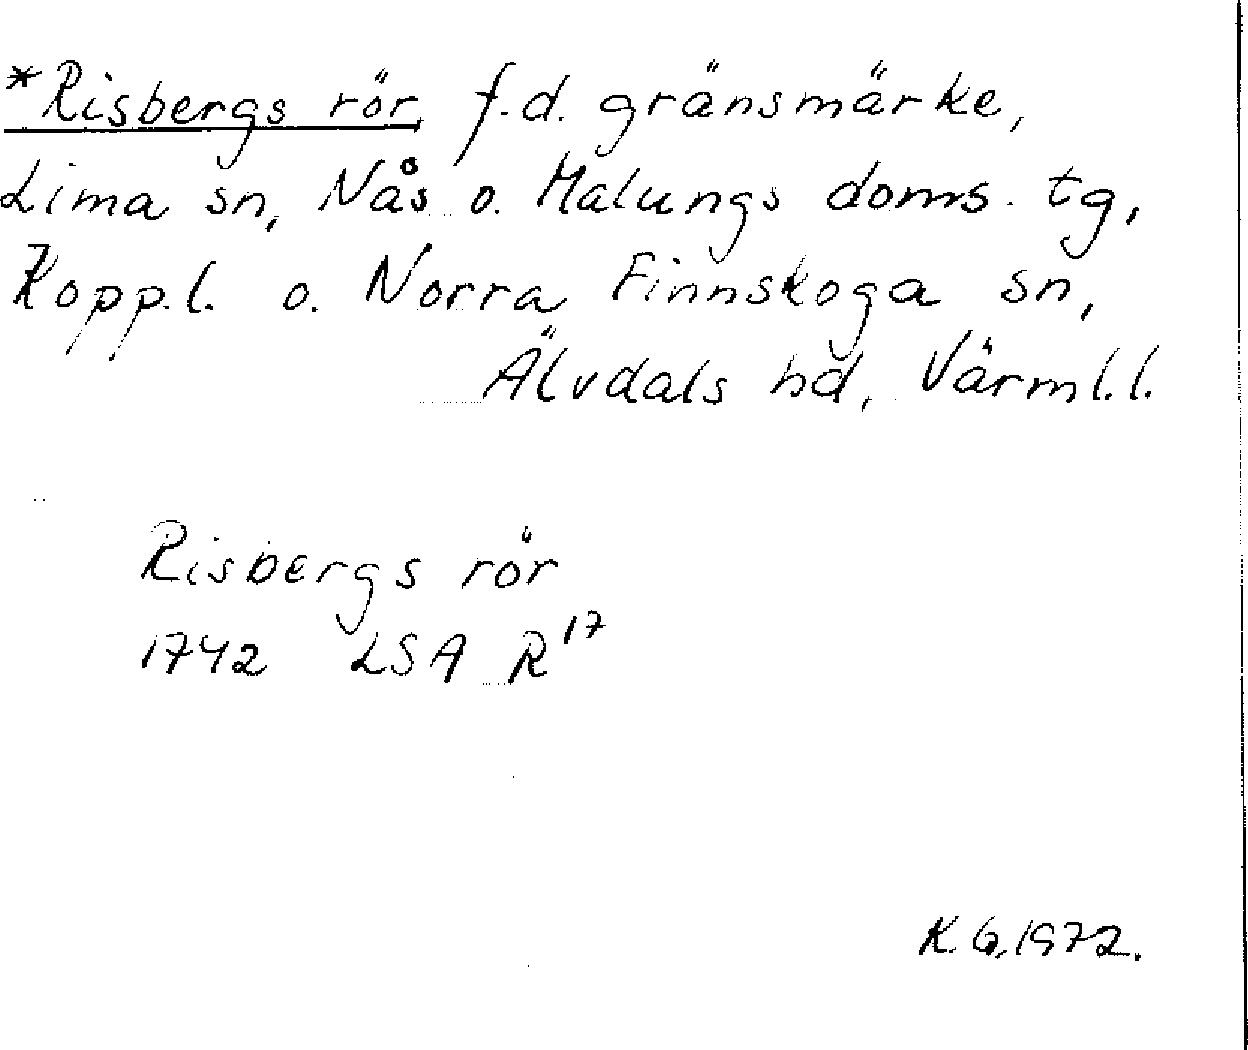 *Risbergs rör, f.d. gränsmärke,
Lima sn, Nås o. Malungs doms. tg,
Kopp.l. o. Norra Finnskoga sn,
Älvdals hd, Värml.l.
Risbergs rör
1742 LSA R¹⁷
K.G. 1972.